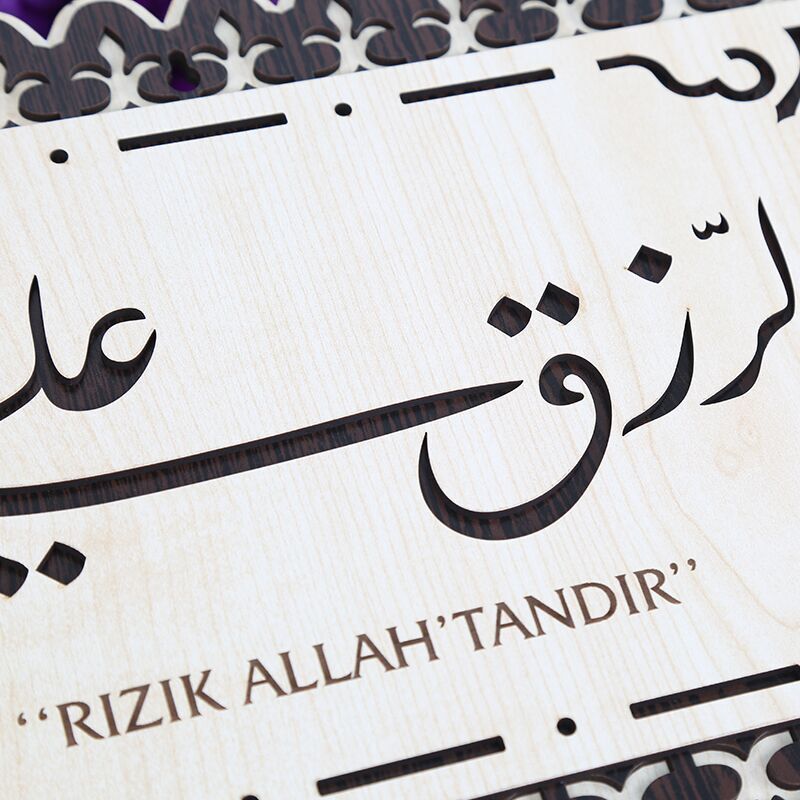 لرّزق علي
‘‘RIZIK ALLAH’TANDIR’’